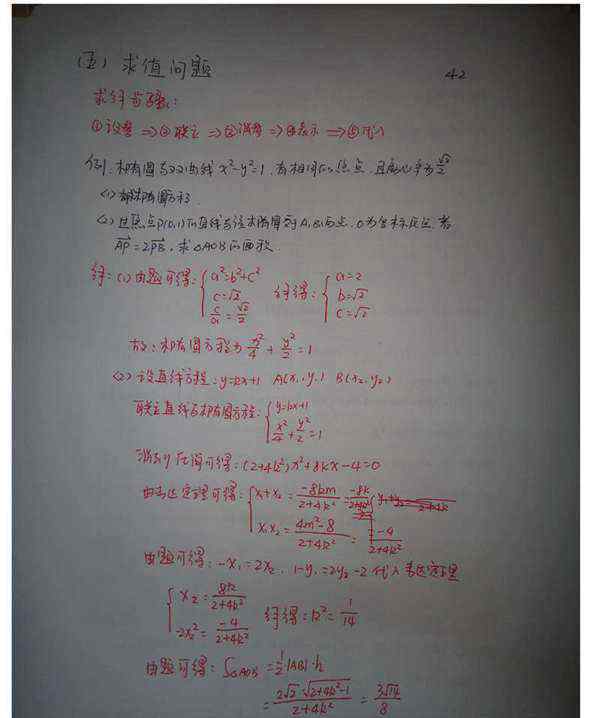 (五) 求值问题
42
求解步骤:
①设参 ⇒ ② 联立 ⇒ ③ 消参 ⇒ ④表示 ⇒ ⑤代入
例1. 椭圆与双曲线 x²-y²=1. 有相同的焦点. 且离心率为√2/2
(1) 求椭圆方程.
(2) 过点P(0,1)的直线与该椭圆交于A.B两点. O为坐标原点. 若
AP=2PB, 求△AOB的面积.
解: (1) 由题可得: { a²=b²+c² c=√2 c/a=√2/2 解得: { a=2 b=√2 c=√2
故: 椭圆方程为 x²/4 + y²/2 =1
(2) 设直线方程: y=kx+1 A(x₁,y₁) B(x₂,y₂)
联立直线与椭圆方程: { y=kx+1 x²/4+y²/2=1
可得: (2+4k²)x²+8kx-4=0
由韦达定理可得: { x₁+x₂ = -8km/2+4k² = -8k/2+4k²
x₁x₂ = 4m²-8/2+4k² = -4/2+4k²
由题可得: -x₁=2x₂. 1-y₁=2y₂-2 代入韦达定理
{ x₂ = 8k/2+4k² -2x₂² = -4/2+4k² 解得: k²=1/14
由题可得: S△AOB = 1/2|AB|·h
= 2√2·√2+4k²-1/2+4k² = 3√14/8